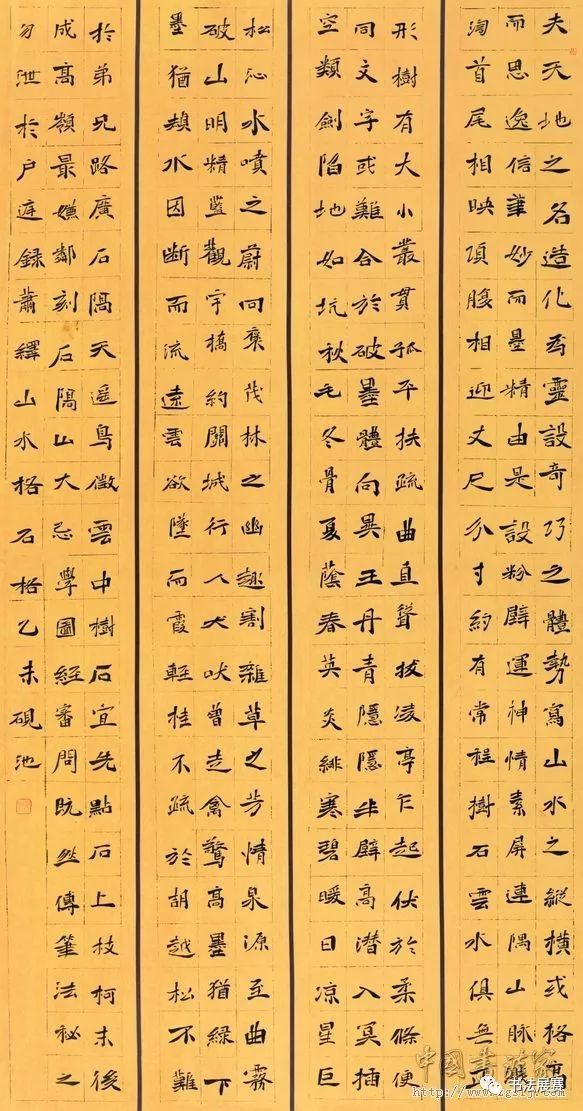 夫天地之名造化為靈設奇巧之體勢寫山水之縱橫或格高
而思逸信筆妙而墨精由是設粉壁運神情素屏連隅山脉
首尾相映項腹相迎丈尺分寸約有常程樹石雲水俱無
形樹有大小叢貫孤平扶疏曲直聳拔凌亭乍起伏於柔條便
同文字或難合於破墨體向異王丹青隱隱半壁高潛入冥插
空類劍陷地如坑秋毛冬骨夏蔭春英炎緋寒碧暖日凉星巨
松沁水噴之蔚冋茂林之幽趣割雜草之芳情泉源至曲霧
破山明精藍觀宇橋約關城行人犬吠曾走禽驚高墨猶綠下
墨猶赬水因斷而流遠雲欲墜而霞輕桂不疏於胡越松不難
於弟兄路廣石隔天遥鳥徵雲中樹石宜先點石上枝柯末後
成高嶺最嫌鄰刻石隔山大忌學圖經審問既然傳筆法秘之
勿泄於户庭録蕭繹山水格石格乙未硯池
中國書法家
书法展赛